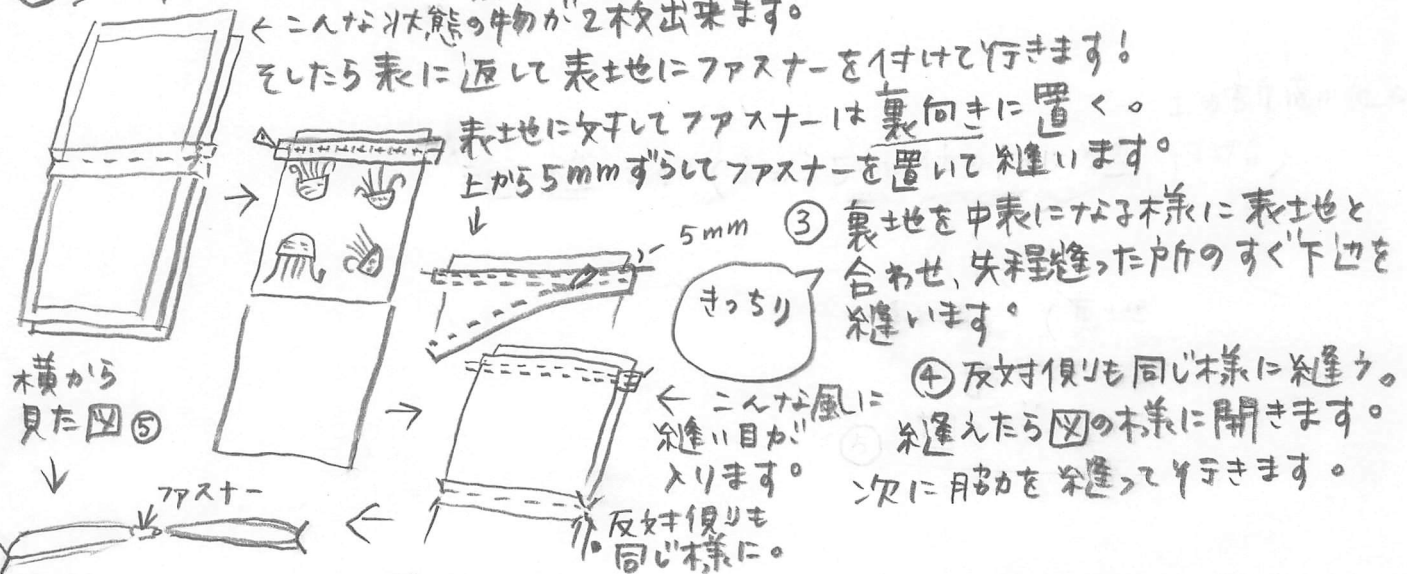 ←こんな状態の物が2枚出来ます。
そしたら表に返して表地にファスナーを付けて行きます!
表地に対してファスナーは裏向きに置く。
上から5mmずらしてファスナーを置いて縫います。
↓
5mm
③ 裏地を中表になる様に表地と
合わせ、先程縫った所のすぐ下辺を
縫います。
きっちり
④反対側も同じ様に縫う。
縫えたら図の様に開きます。
次に脇を縫って行きます。
←こんな風に
縫い目が
入ります。
反対側も
同じ様に。
横から
見た図⑤
↓
ファスナー